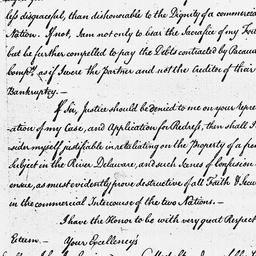 less disgraceful, than dishonorable to the Dignity of a commercial
Nation. If not, I am not only to bear the Sacrifice of my Fort
but be further compelled to pay the Debts contracted by Beauma
Compy. as if I were the Partner and not the Creditor of their
Bankruptcy. —
If Sir, Justice should be denied to me on your Repre
ation of my Case, and Application for Redress, then shall I
sider myself justifiable in retaliating on the Property of a fre
Subject in the River Delaware, and such Scenes of Confusion
ensue, as must evidently prove destructive of all Faith & Secu
in the commercial Intercourse of the two Nations. —
I have the Honor to be with very great Respect
Esteem. — Your Excellency's